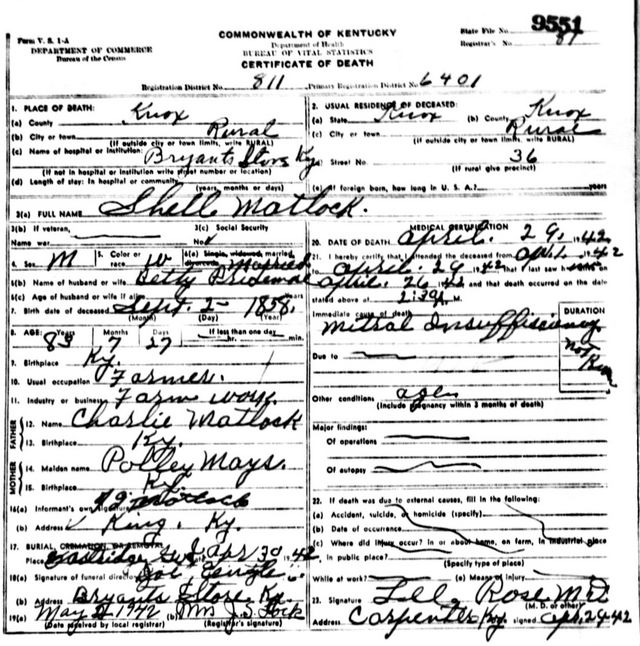 Form V. S. 1-A
DEPARTMENT OF COMMERCE
Bureau of the Census
COMMONWEALTH OF KENTUCKY
Department of Health
BUREAU OF VITAL STATISTICS
CERTIFICATE OF DEATH
State File No. 9551
Registrar's No. 81
Registration District No. 811 Primary Registration District No. 6401
1. PLACE OF DEATH:
(a) County Knox
(b) City or town Rural
(If outside city or town limits, write RURAL)
(c) Name of hospital or institution: Bryants Store Ky
(If not in hospital or institution write street number or location)
(d) Length of stay: In hospital or community
(years, months or days)
2. USUAL RESIDENCE OF DECEASED:
(a) State Knox (b) County Knox
(c) City or town Rural
(If outside city or town limits, write RURAL)
(d) Street No. 36
(If rural give precinct)
(e) If foreign born, how long in U. S. A.? years
3(a) FULL NAME Shell Matlock.
3(b) If veteran,
Name war
3(c) Social Security
No.
4. Sex M 5. Color or race W 6(a) Single, widowed, married, divorced Married
6(b) Name of husband or wife Betty
6(c) Age of husband or wife if alive years
7. Birth date of deceased Sept. 2 - 1858.
(Month) (Day) (Year)
8. AGE: Years Months Days If less than one day
83 7 27 hr. min.
9. Birthplace Ky.
10. Usual occupation Farmer.
11. Industry or business Farm work.
FATHER
12. Name Charlie Matlock
13. Birthplace Ky.
MOTHER
14. Maiden name Polley Mays.
15. Birthplace Ky.
16(a) Informant's own signature Matlock
(b) Address King, Ky.
17. BURIAL, CREMATION, OR REMOVAL
Place Apr 30 1942
18(a) Signature of funeral director
(b) Address Bryants Store Ky.
19(a) May 2 1942 (b) Mrs J.S.
(Date received by local registrar) (Registrar's signature)
MEDICAL CERTIFICATION
20. DATE OF DEATH April. 29, 1942
21. I hereby certify that I attended the deceased from Apl. 1942
to April. 29 1942 that I last saw
April. 26 1942 and that death occurred on the date
stated above at M.
Immediate cause of death
Mitral Insufficiency
DURATION
not Kn
Due to
Other conditions
(Include pregnancy within 3 months of death)
Major findings:
Of operations
Of autopsy
22. If death was due to external causes, fill in the following:
(a) Accident, suicide, or homicide (specify)
(b) Date of occurrence
(c) Where did injury occur? in or about home, on farm, in industrial place
in public place?
(Specify type of place)
While at work? (e) Means of injury
23. Signature Lee Rose MD
(M. D. or other)
Address Carpenter Ky. signed Apr. 29 42